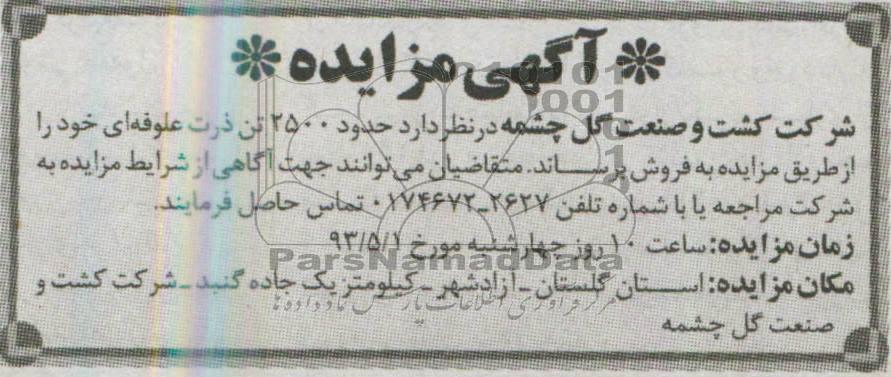 آگهی مزایده
شرکت کشت و صنعت گل چشمه درنظر دارد حدود ۲۵۰۰ تن ذرت علوفه‌ای خود را
از طریق مزایده به فروش برساند. متقاضیان می‌توانند جهت آگاهی از شرایط مزایده به
شرکت مراجعه یا با شماره تلفن ۲۶۲۷-۰۱۷۴۶۷۲ تماس حاصل فرمایند.
زمان مزایده: ساعت ۱۰ روز چهارشنبه مورخ ۹۳/۵/۱
ParsNamadData
مکان مزایده: استان گلستان - آزادشهر - کیلومتر یک جاده گنبد - شرکت کشت و
مرکز فرآوری اطلاعات پارس نماد داده‌ها
صنعت گل چشمه